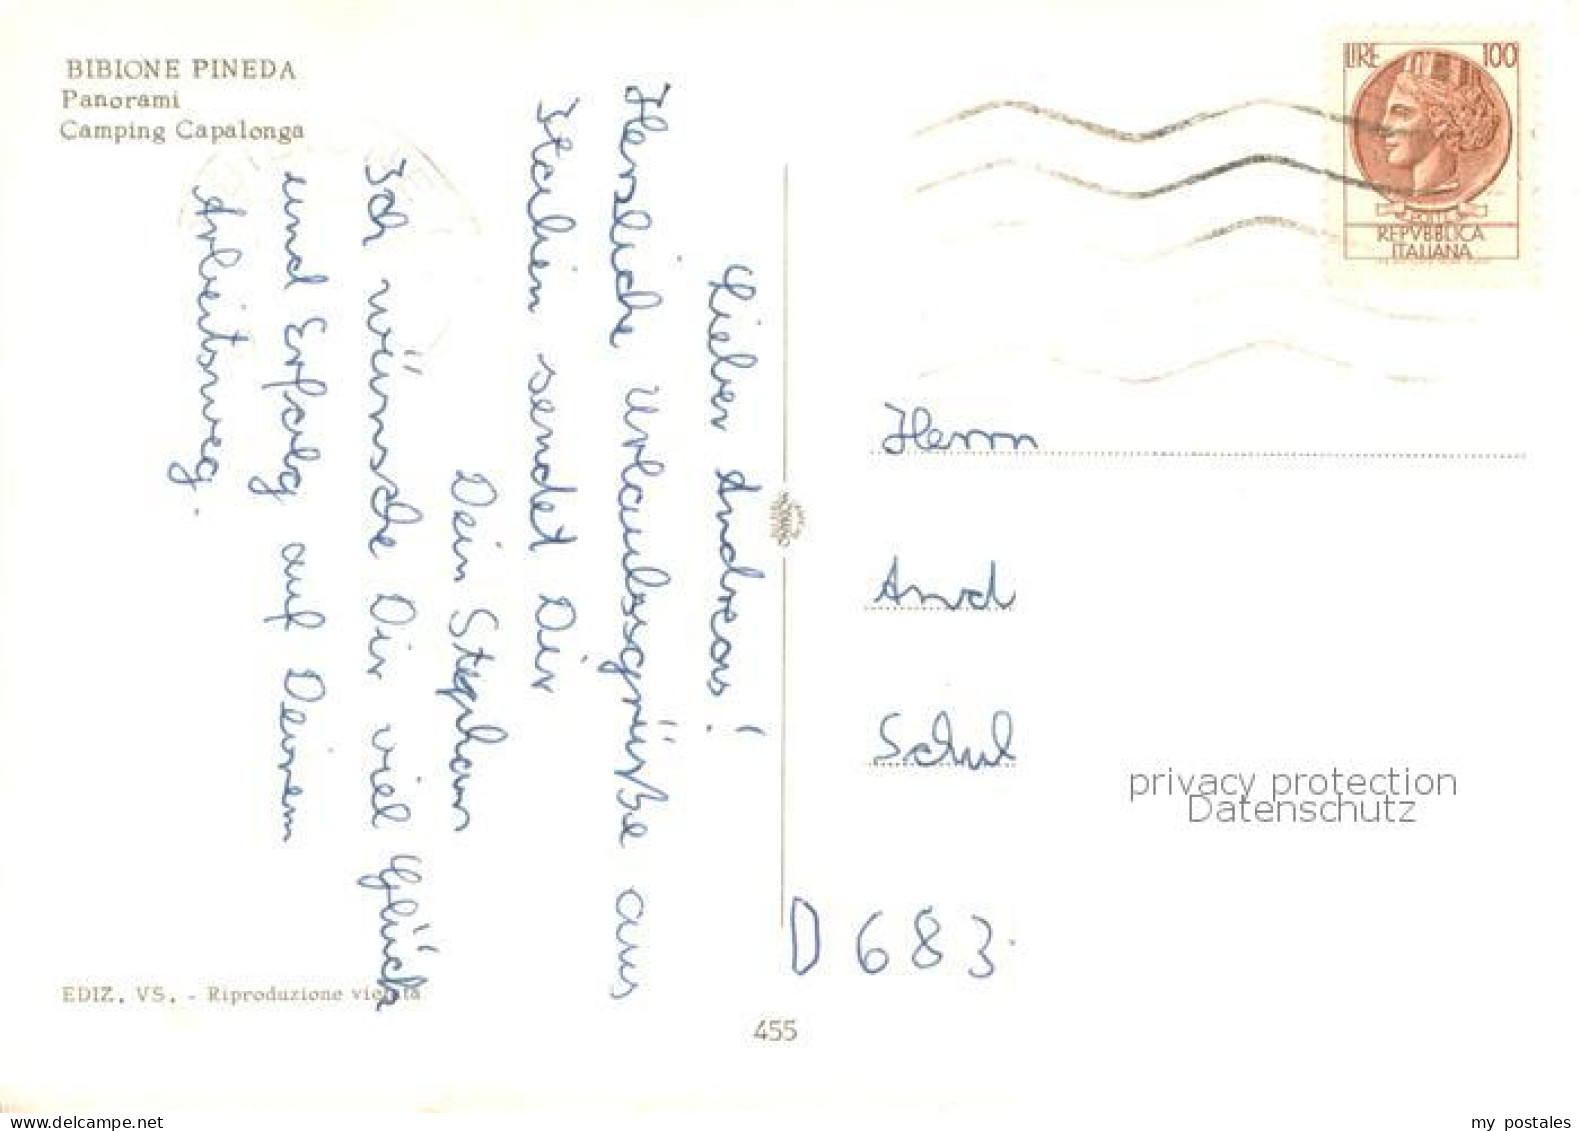 BIBIONE PINEDA
Panorami
Camping Capalonga
Lieber Andreas!
Herzliche Urlaubsgrüße aus
Italien sendet Dir
Dein Stephan
Ich wünsche Dir viel Glück
und Erfolg auf Deinem
Arbeitsweg.
EDIZ. VS. - Riproduzione vietata
455
LIRE 100
POSTE
REPVBBLICA
ITALIANA
Herrn
And
Schul
D 683
privacy protection
Datenschutz
www.delcampe.net
my postales